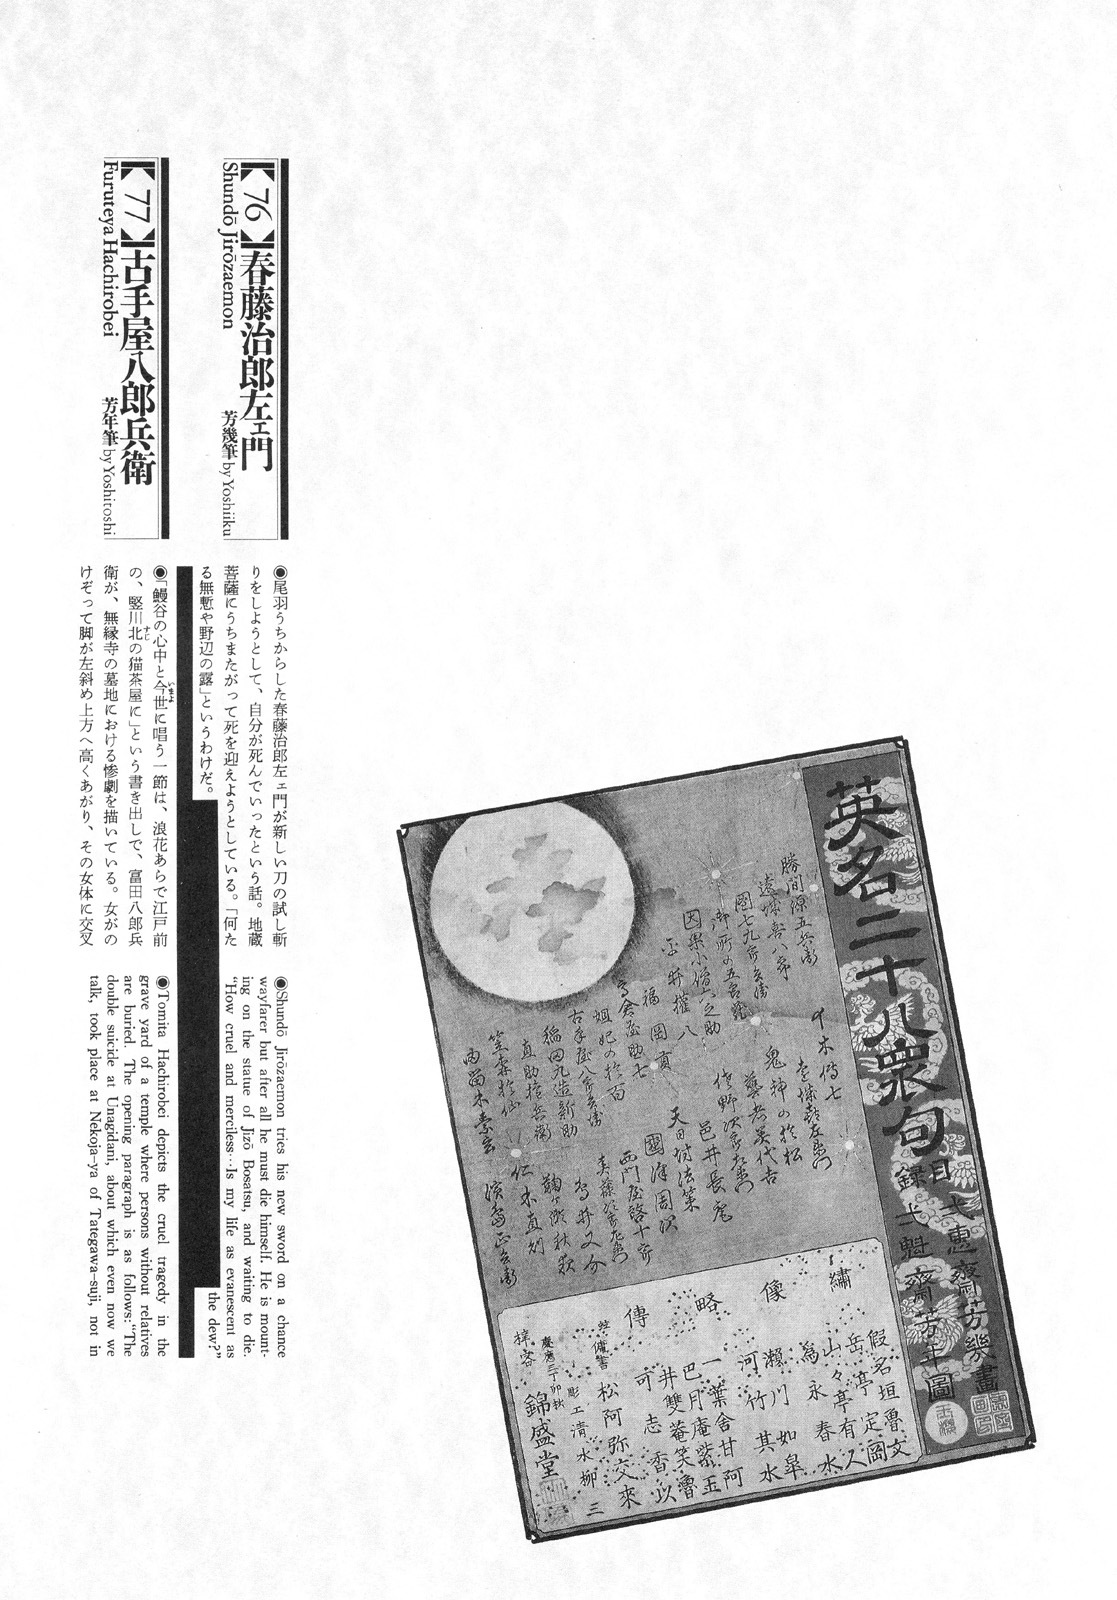 【76】春藤治郎左ェ門
Shundō Jirōzaemon
芳幾筆 by Yoshiiku
◉尾羽うちからした春藤治郎左ェ門が新しい刀の試し斬
りをしようとして、自分が死んでいったという話。地蔵
菩薩にうちまたがって死を迎えようとしている。「何た
る無慙や野辺の露」というわけだ。
◉Shundō Jirōzaemon tries his new sword on a chance
wayfarer but after all he must die himself. He is mount-
ing on the statue of Jizō Bosatsu, and waiting to die.
"How cruel and merciless…Is my life as evanescent as
the dew?"
【77】古手屋八郎兵衛
Furuteya Hachirobei
芳年筆 by Yoshitoshi
◉「鰻谷の心中と今世に唱う一節は、浪花あらで江戸前
いまよ
の、竪川北の猫茶屋に」という書き出しで、富田八郎兵
すじ
衛が、無縁寺の墓地における惨劇を描いている。女がの
けぞって脚が左斜め上方へ高くあがり、その女体に交叉
◉Tomita Hachirobei depicts the cruel tragedy in the
grave yard of a temple where persons without relatives
are buried. The opening paragraph is as follows:"The
double suicide at Unagidani, about which even now we
talk, took place at Nekoja-ya of Tategawa-suji, not in
英名二十八衆句
一惠齋芳幾畫
一魁齋芳年圖
目
録
勝間源五兵衛
遠城喜八郎
團七九郎兵衛
御所の五郎蔵
因果小僧六之助
平井權八
福岡貢
鳥倉屋助七
妲妃の於百
古手屋八郎兵衛
稲田九造新助
直助権兵衛
笠森於仙
由留木素玄
十木傳七
鬼神の於松
邑井長庵
天日坊法策
國澤周次
西門屋啓十郎
春藤治郎左衛門
鳥井又介
鞠ヶ瀬秋夜
仁木直則
濱島正兵衛
繍像略傳
假名垣魯文
岳亭定岡
山々亭有人
爲永春水
瀬川如皐
河竹其水
一葉舍甘阿
巴月庵紫玉
井雙菴笑魯
可志香以
松阿弥交來
傭書
彫工清水柳三
慶應三丁卯秋
梓客
錦盛堂